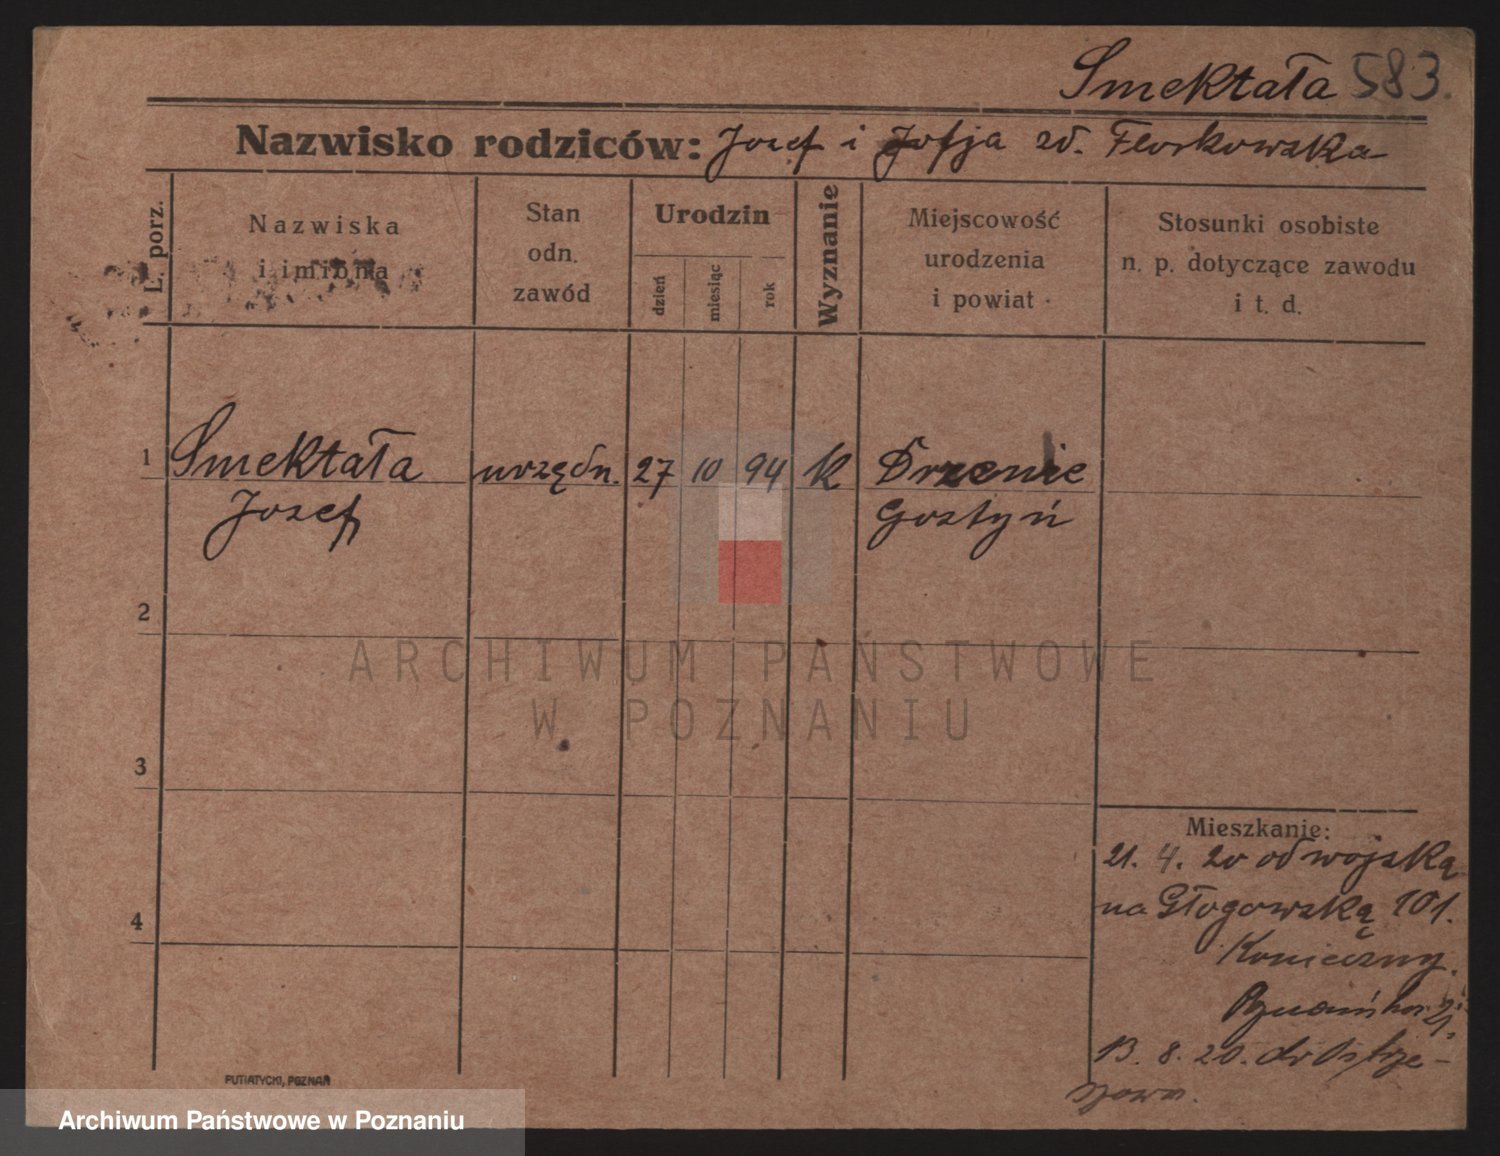 Smektała 583.
Nazwisko rodziców: Jozef i Zofja zd. Florkowska
L. porz.
Nazwiska
i imiona
Stan
odn.
zawód
Urodzin
dzień
miesiąc
rok
Wyznanie
Miejscowość
urodzenia
i powiat
Stosunki osobiste
n. p. dotyczące zawodu
i t. d.
1 Smektała urzędn. 27 10 94 k
Jozef Gostyń
2
ARCHIWUM PAŃSTWOWE
W POZNANIU
3
4
Mieszkanie:
21. 4. 20 od wojska
na Głogowską 101.
Konieczny.
13. 8. 20. do Ostrze-
szowa.
PUTIATYCKI, POZNAŃ
Archiwum Państwowe w Poznaniu